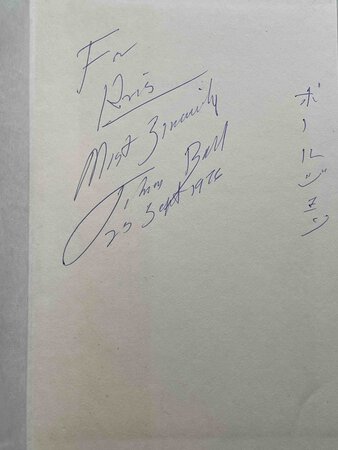 For
Kris
Most Sincerely
John Ball
Sept 1976
ボールジョン